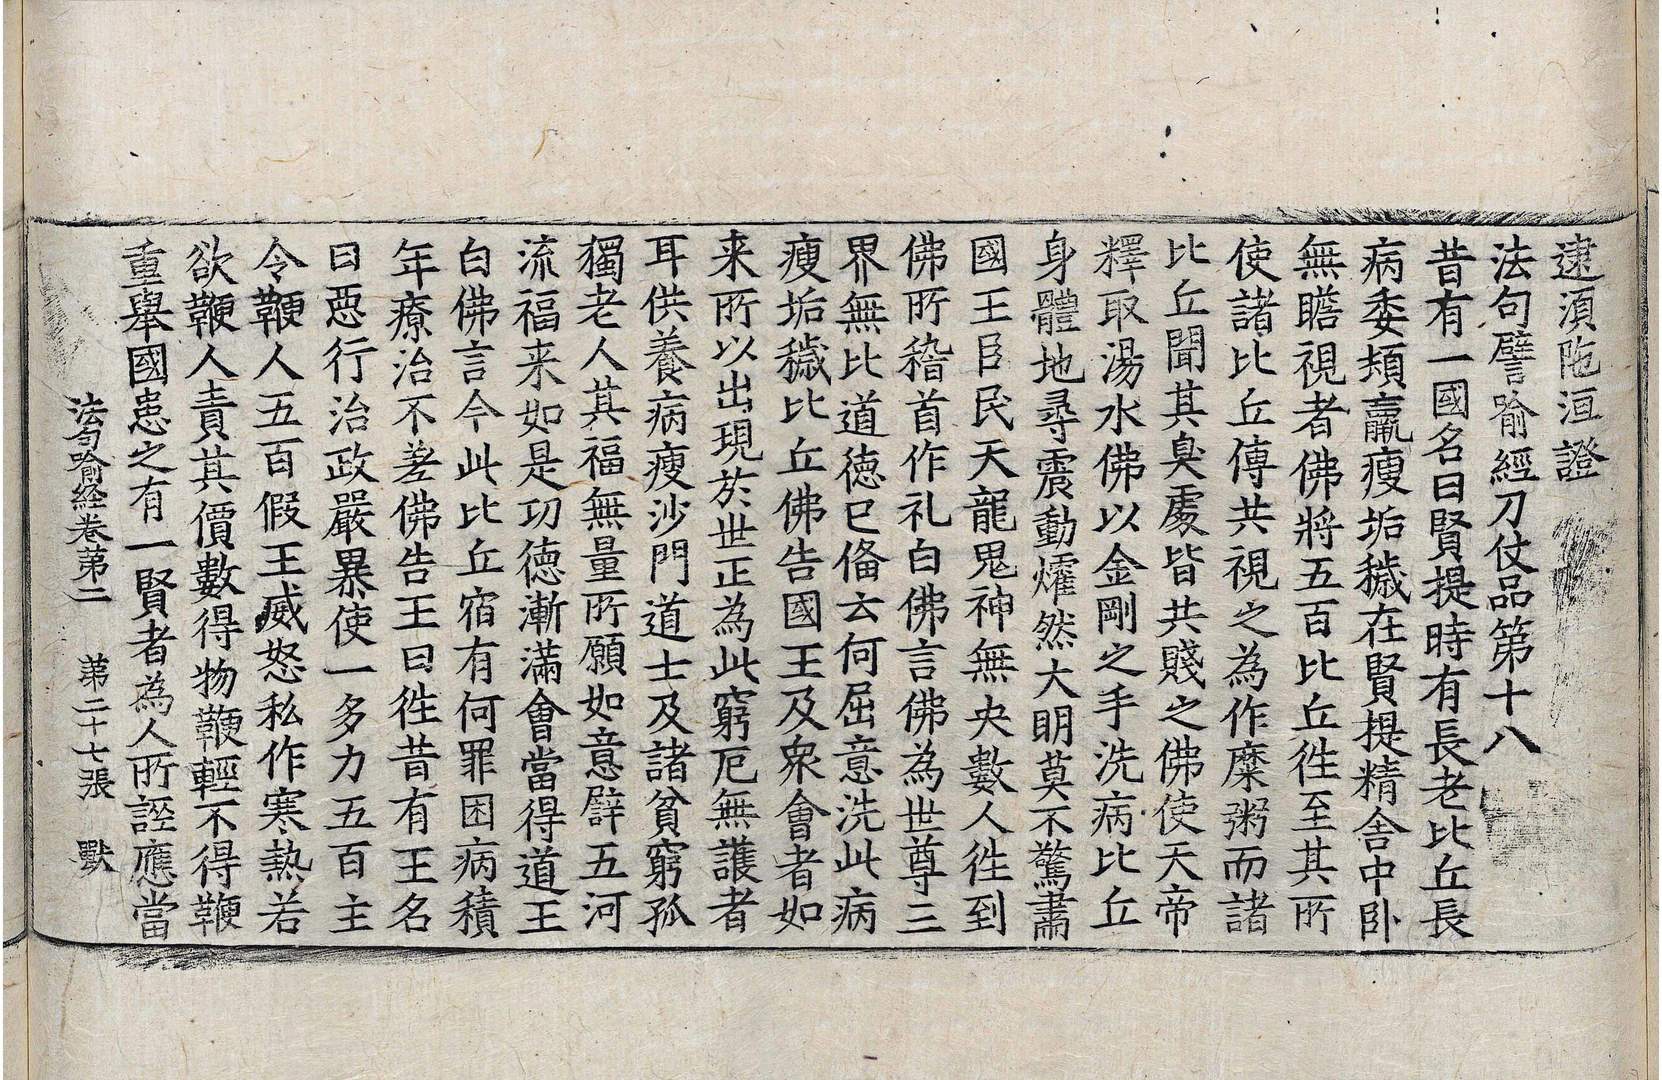 逮湏陁洹證
法句譬喻經刀仗品第十八
昔有一國名曰賢提時有長老比丘長
病委頓羸瘦垢穢在賢提精舍中卧
無瞻視者佛將五百比丘徃至其所
使諸比丘傳共視之為作糜粥而諸
比丘聞其臭處皆共賤之佛使天帝
釋取湯水佛以金剛之手洗病比丘
身體地尋震動㸌然大明莫不驚肅
國王臣民天龍鬼神無央數人徃到
佛所稽首作礼白佛言佛為世尊三
界無比道德已俻云何屈意洗此病
瘦垢穢比丘佛告國王及衆會者如
来所以出現於世正為此窮厄無護者
耳供養病瘦沙門道士及諸貧窮孤
獨老人其福無量所願如意譬五河
流福来如是功德漸滿會當得道王
白佛言今此比丘宿有何罪困病積
年療治不差佛告王曰徃昔有王名
曰惡行治政嚴暴使一多力五百主
令鞭人五百假王威怒私作寒熱若
欲鞭人責其價數得物鞭輕不得鞭
重舉國患之有一賢者為人所誣應當
法句喻経卷第二 第二十七張 獸